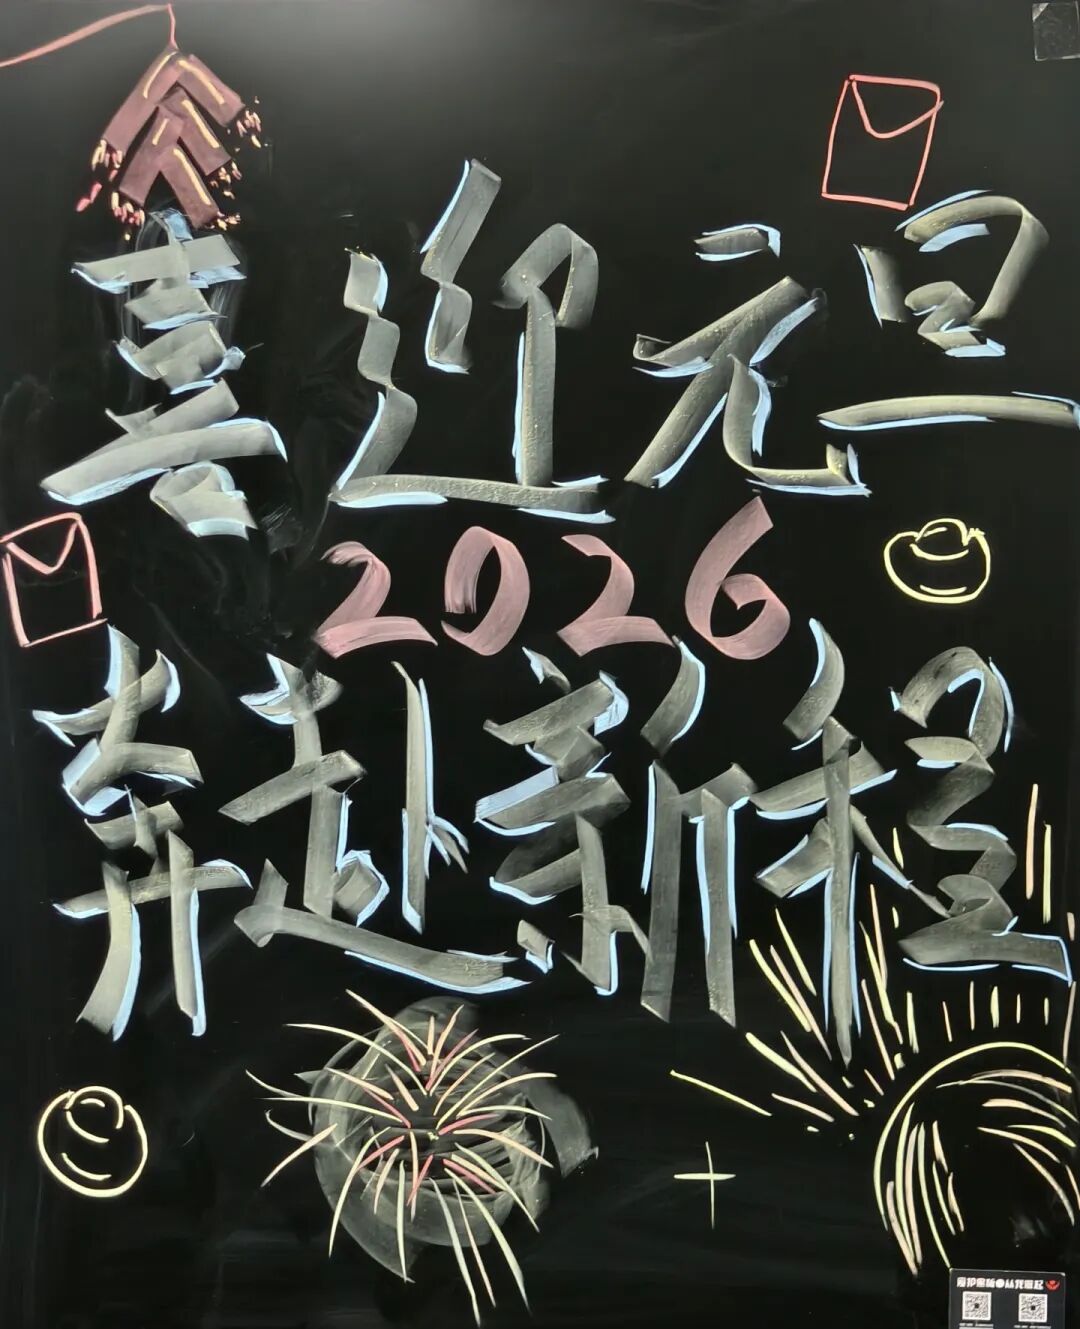 喜迎元旦
2026
奔赴新征程